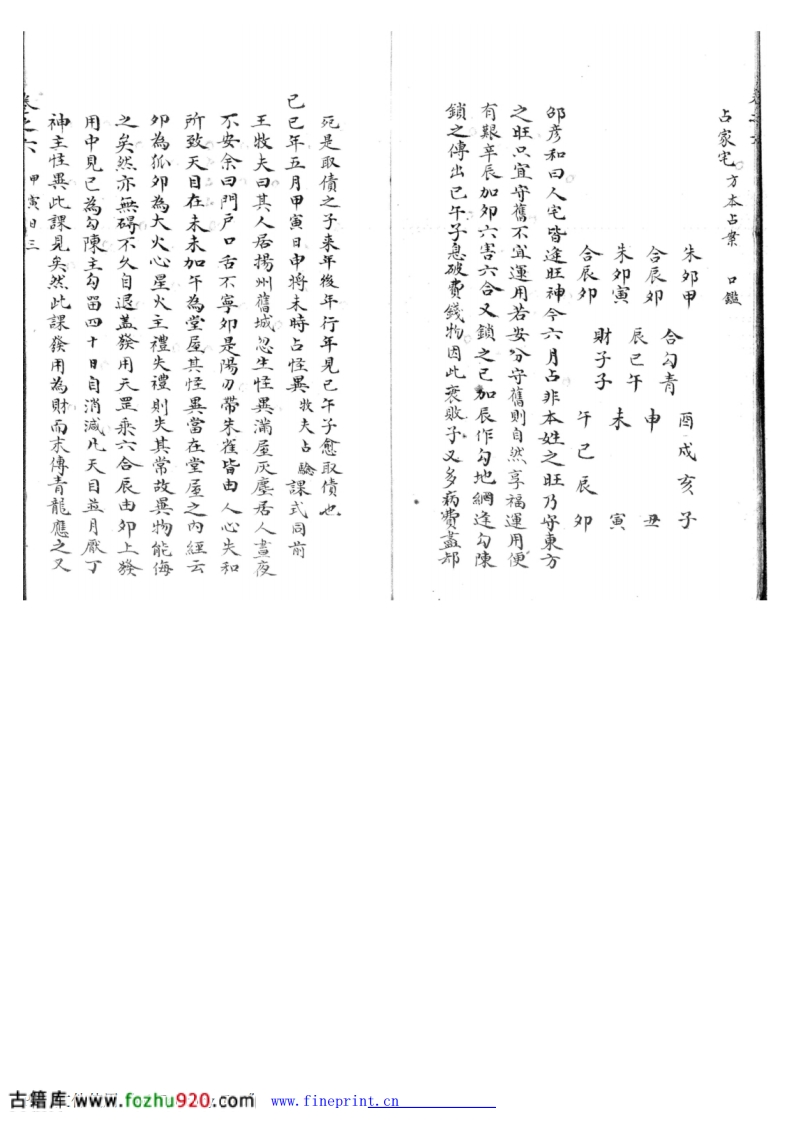 占家宅 方本占案 口鑑
朱卯甲 合辰卯 朱卯寅 合辰卯
合勾青 辰巳午 財子子
酉戌亥子
申丑
未寅
午巳辰卯
邵彦和曰人宅皆逢旺神今六月占非本姓之旺乃守東方
之旺只宜守舊不宜運用若安分守舊則自然享福運用便
有艱辛辰加卯六害六合又鎖之巳加辰作勾地網逢勾陳
鎖之傳出巳午子息破費錢物因此衰敗子又多病費盡却
死是取債之子来年後年行年見巳午子愈取債也
己巳年五月甲寅日申將未時占怪異 牧夫占驗 課式同前
王牧夫曰其人居揚州舊城忽生怪異滿屋灰塵居人晝夜
不安余曰門戶口舌不寧卯是陽刃帶朱雀皆由人心失和
所致天目在未未加午為堂屋其怪異當在堂屋之内經云
卯為狐卯為大火心星火主禮失禮則失其常故異物能侮
之矣然亦無碍不久自退盖發用天罡乘六合辰由卯上發
用中見巳為勾陳主勾留四十日自消滅凢天目並月厭丁
神主怪異此課見矣然此課發用為財而末傳青龍應之又
卷之六 甲寅日三
古籍库 www.fozhu920.com
www.fineprint.cn